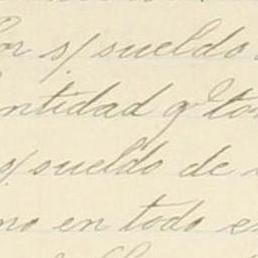 or s/ sueldo
ntidad q' to
s/ sueldo de
no en todo e